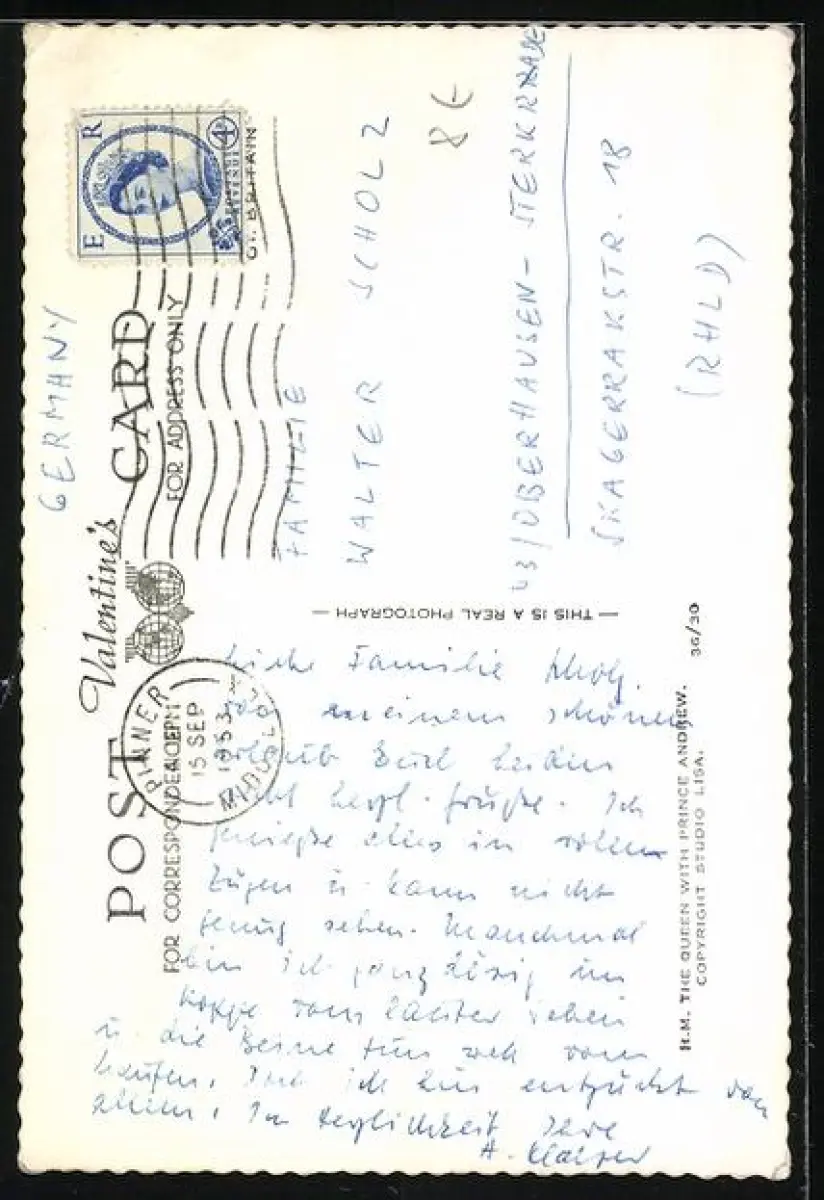 Valentine's
POST CARD
FOR CORRESPONDENCE
FOR ADDRESS ONLY
E R
4D
POSTAGE REVENUE
PINNER
PM
15 SEP
MIDDLX
GT. BRITAIN
GERMANY
FAMILIE
WALTER SCHOLZ
43/OBERHAUSEN-STERKRADE
SKAGERRAKSTR. 18
(RHLD)
8€
— THIS IS A REAL PHOTOGRAPH —
Liebe Familie Scholz,
von meinem schönen
Urlaub Euch beiden
recht herzl. Grüße. Ich
genieße alles in vollen
Zügen u. kann nicht
genug sehen. Manchmal
bin ich ganz dösig im
Koppe vom lauter sehen
u. die Beine tun weh vom
laufen. Doch ich bin entzückt von
allem. In Herzlichkeit Ihre
H.M. THE QUEEN WITH PRINCE ANDREW.
COPYRIGHT STUDIO LISA.
36/30